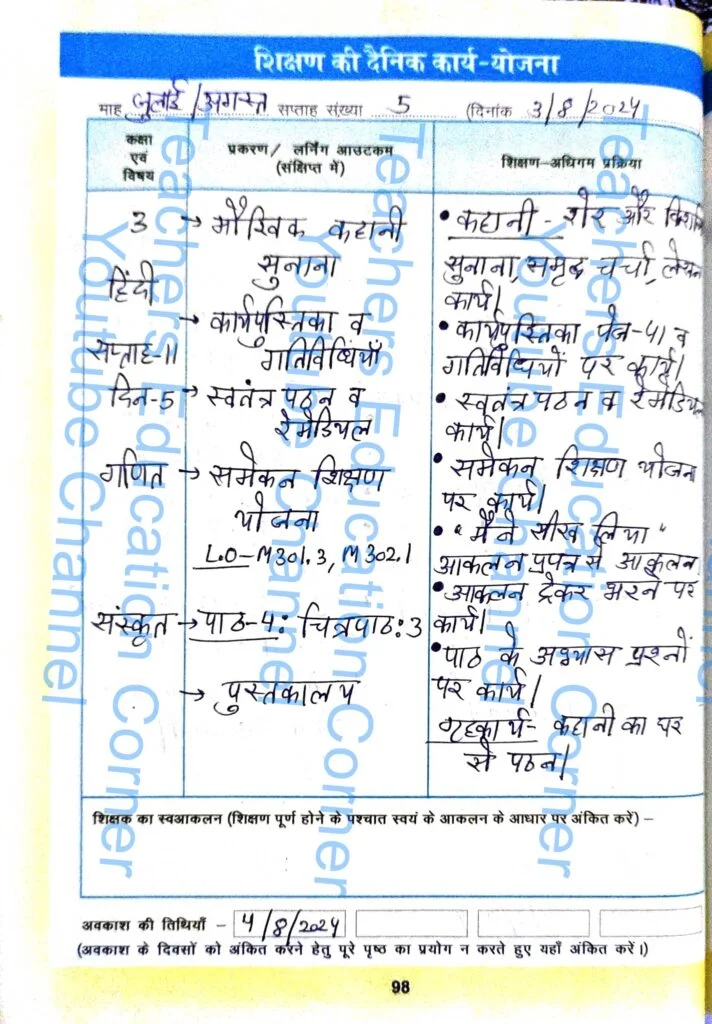 शिक्षण की दैनिक कार्य-योजना
माह जुलाई/अगस्त सप्ताह संख्या 5 (दिनांक 3/8/2024
कक्षा
एवं
विषय
प्रकरण/ लर्निंग आउटकम
(संक्षिप्त में)
शिक्षण-अधिगम प्रक्रिया
3
हिंदी
सप्ताह-11
दिन-5
गणित
संस्कृत
→ मौखिक कहानी
सुनाना
→ कार्यपुस्तिका व
गतिविधियाँ
→ स्वतंत्र पठन व
रेमेडियल
→ समेकन शिक्षण
योजना
L.O-M301.3, M302.1
→ पाठ-4: चित्रपाठ:3
→ पुस्तकालय
• कहानी - शेर और
सुनाना, समृद्ध चर्चा, लेखन
कार्य।
• कार्यपुस्तिका पेज-41 व
गतिविधियों पर कार्य।
• स्वतंत्र पठन व रेमेडियल
कार्य।
• समेकन शिक्षण योजना
पर कार्य।
• "मैंने सीख लिया"
आकलन प्रपत्र से आकलन
• आकलन ट्रैकर भरने पर
कार्य।
• पाठ के अभ्यास प्रश्नों
पर कार्य।
गृहकार्य- कहानी का घर
से पठन।
शिक्षक का स्वआकलन (शिक्षण पूर्ण होने के पश्चात स्वयं के आकलन के आधार पर अंकित करें) –
अवकाश की तिथियाँ – 4/8/2024
(अवकाश के दिवसों को अंकित करने हेतु पूरे पृष्ठ का प्रयोग न करते हुए यहाँ अंकित करें।)
98
Teachers Education Corner
Youtube Channel
Teachers Education Corner
Youtube Channel
Teachers Education Corner
Youtube Channel